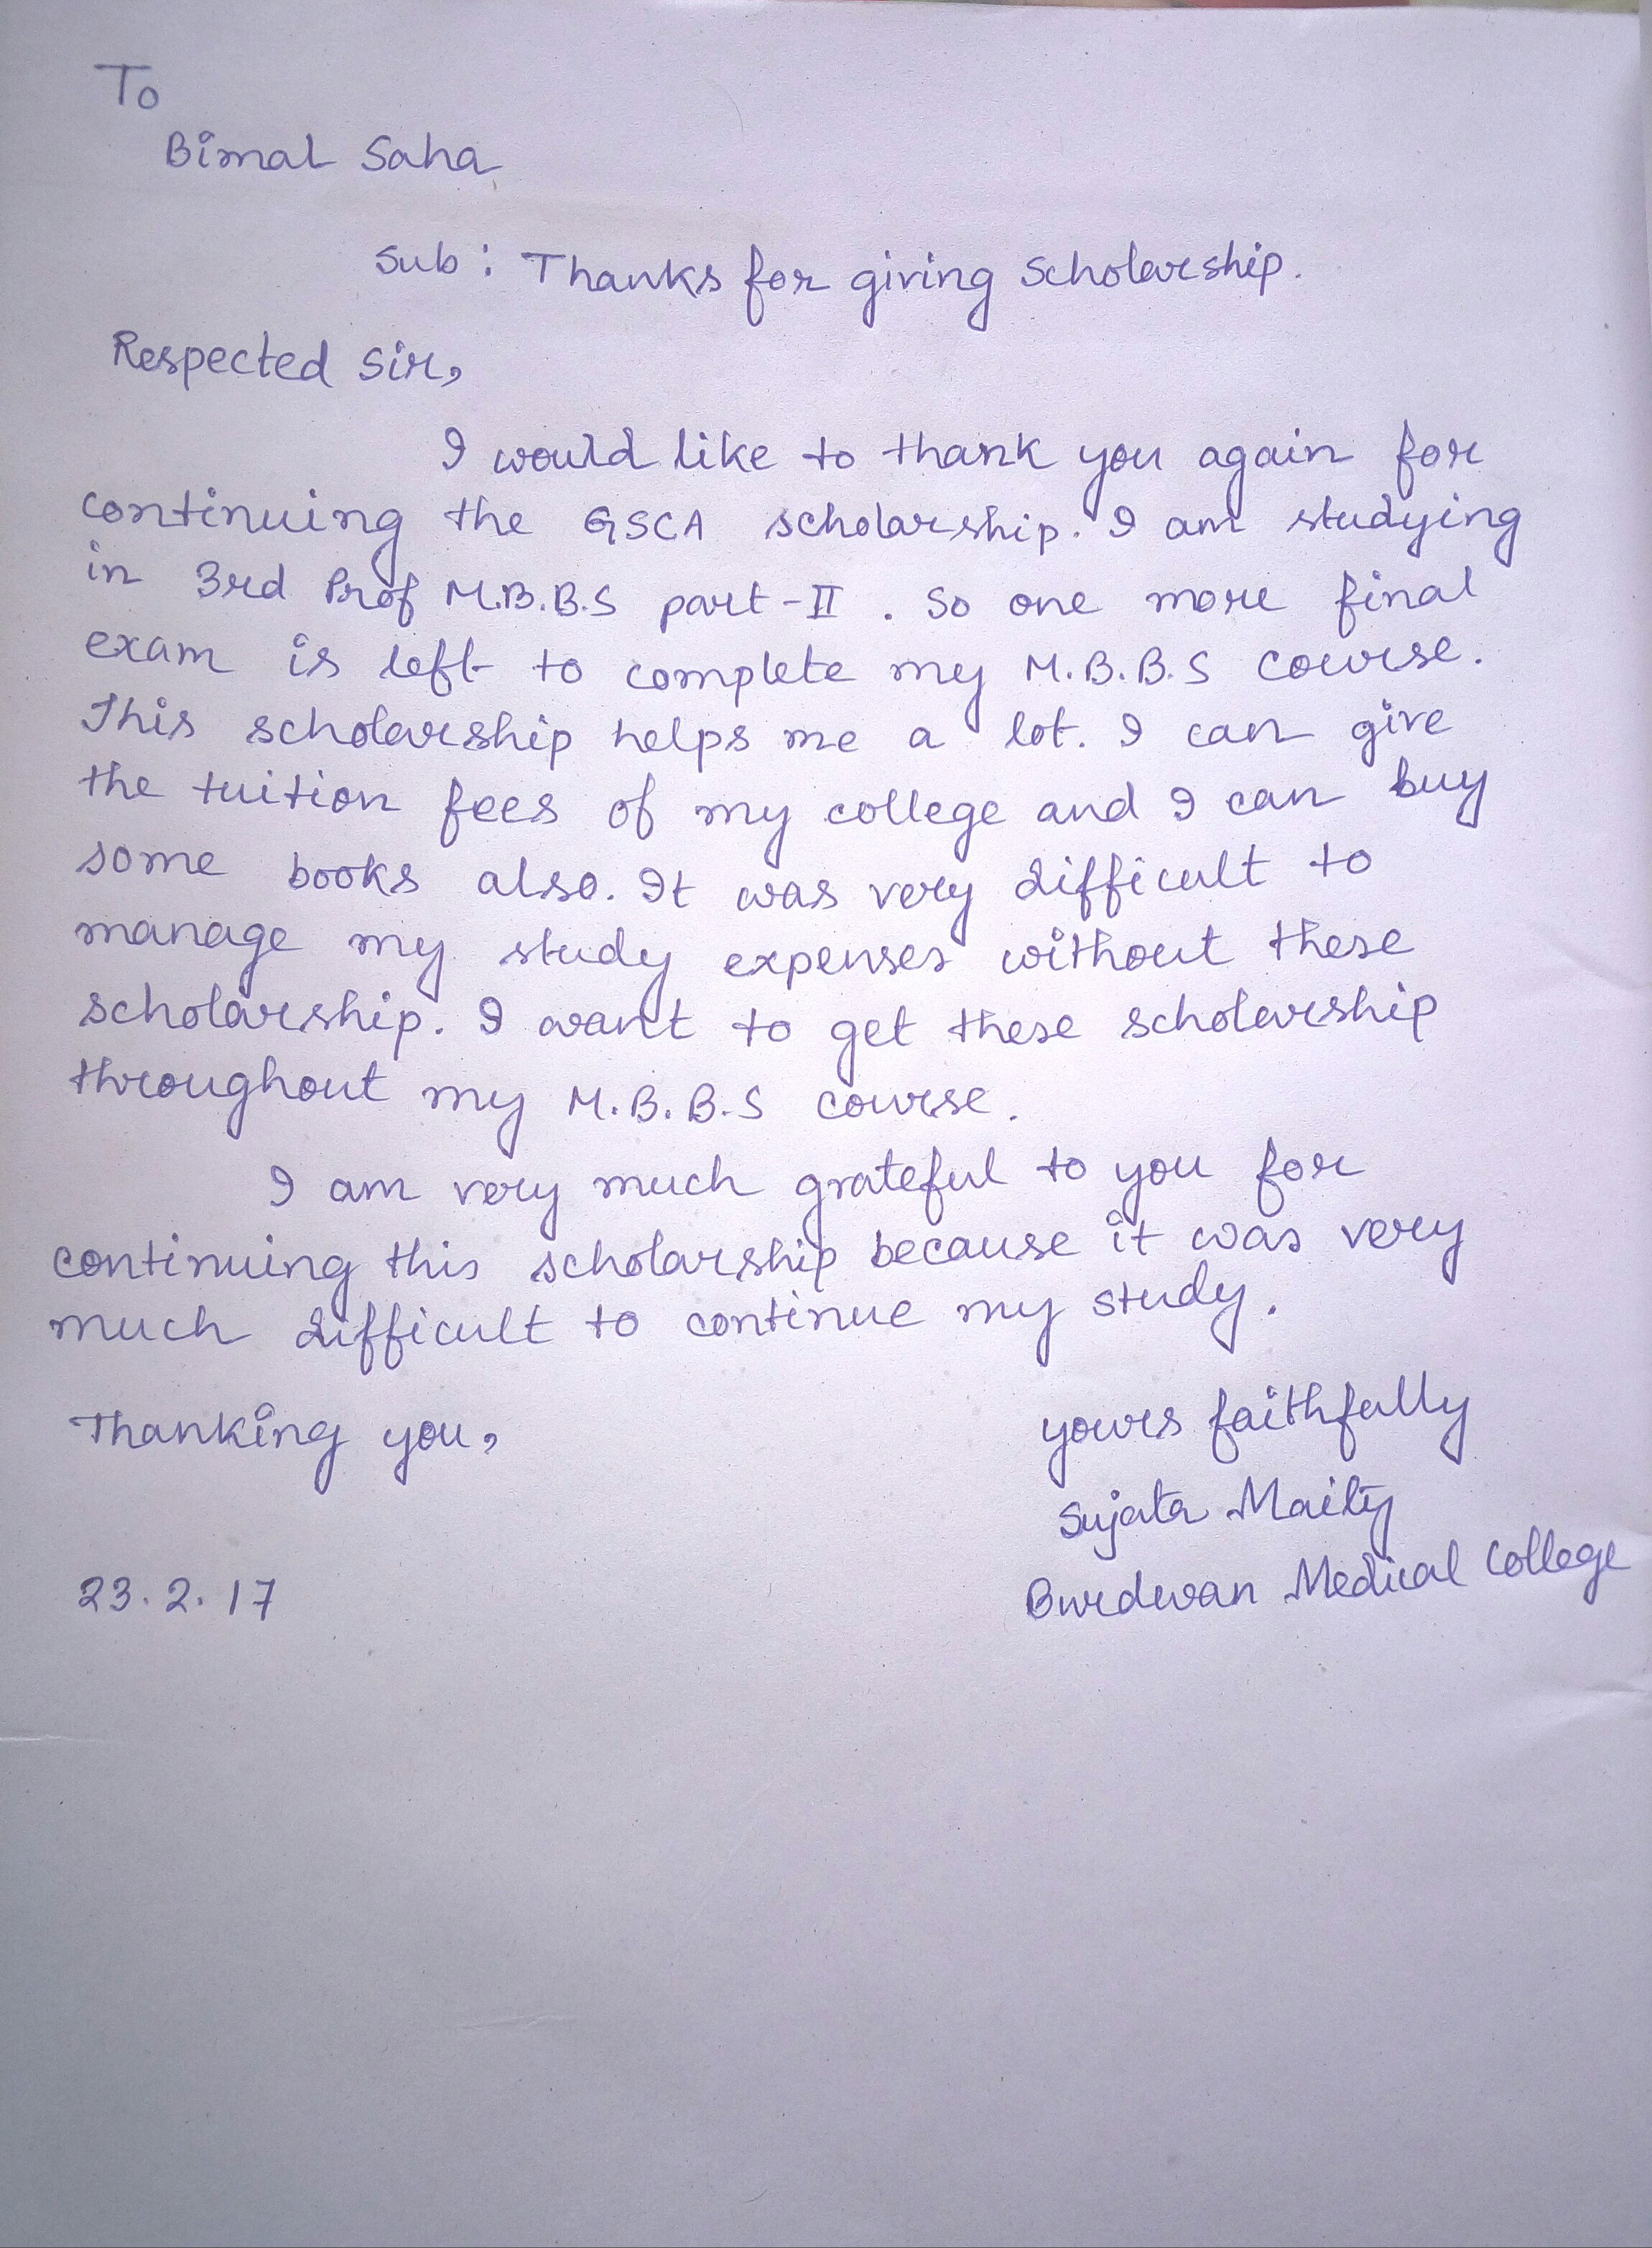 To
Bimal Saha
Sub: Thanks for giving scholarship.
Respected Sir,
I would like to thank you again for
continuing the GSCA scholarship. I am studying
in 3rd Prof M.B.B.S part-II. So one more final
exam is left to complete my M.B.B.S course.
This scholarship helps me a lot. I can give
the tuition fees of my college and I can buy
some books also. It was very difficult to
manage my study expenses without these
scholarship. I want to get these scholarship
throughout my M.B.B.S course.
I am very much grateful to you for
continuing this scholarship because it was very
much difficult to continue my study.
Thanking you,
yours faithfully
Sujata Maity
Burdwan Medical College
23.2.17